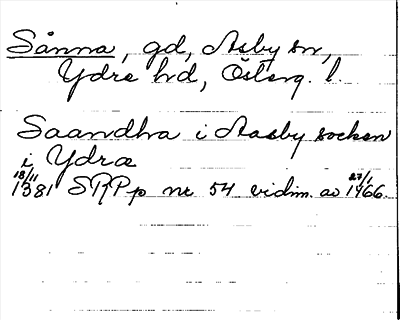 Sånna, gd, Asby sn,
Ydre hd, Österg. l.
Saandha i Aasby sochen
i Ydra
18/11 1381 SRPp nr 54 vidim. av 27/1 1466.